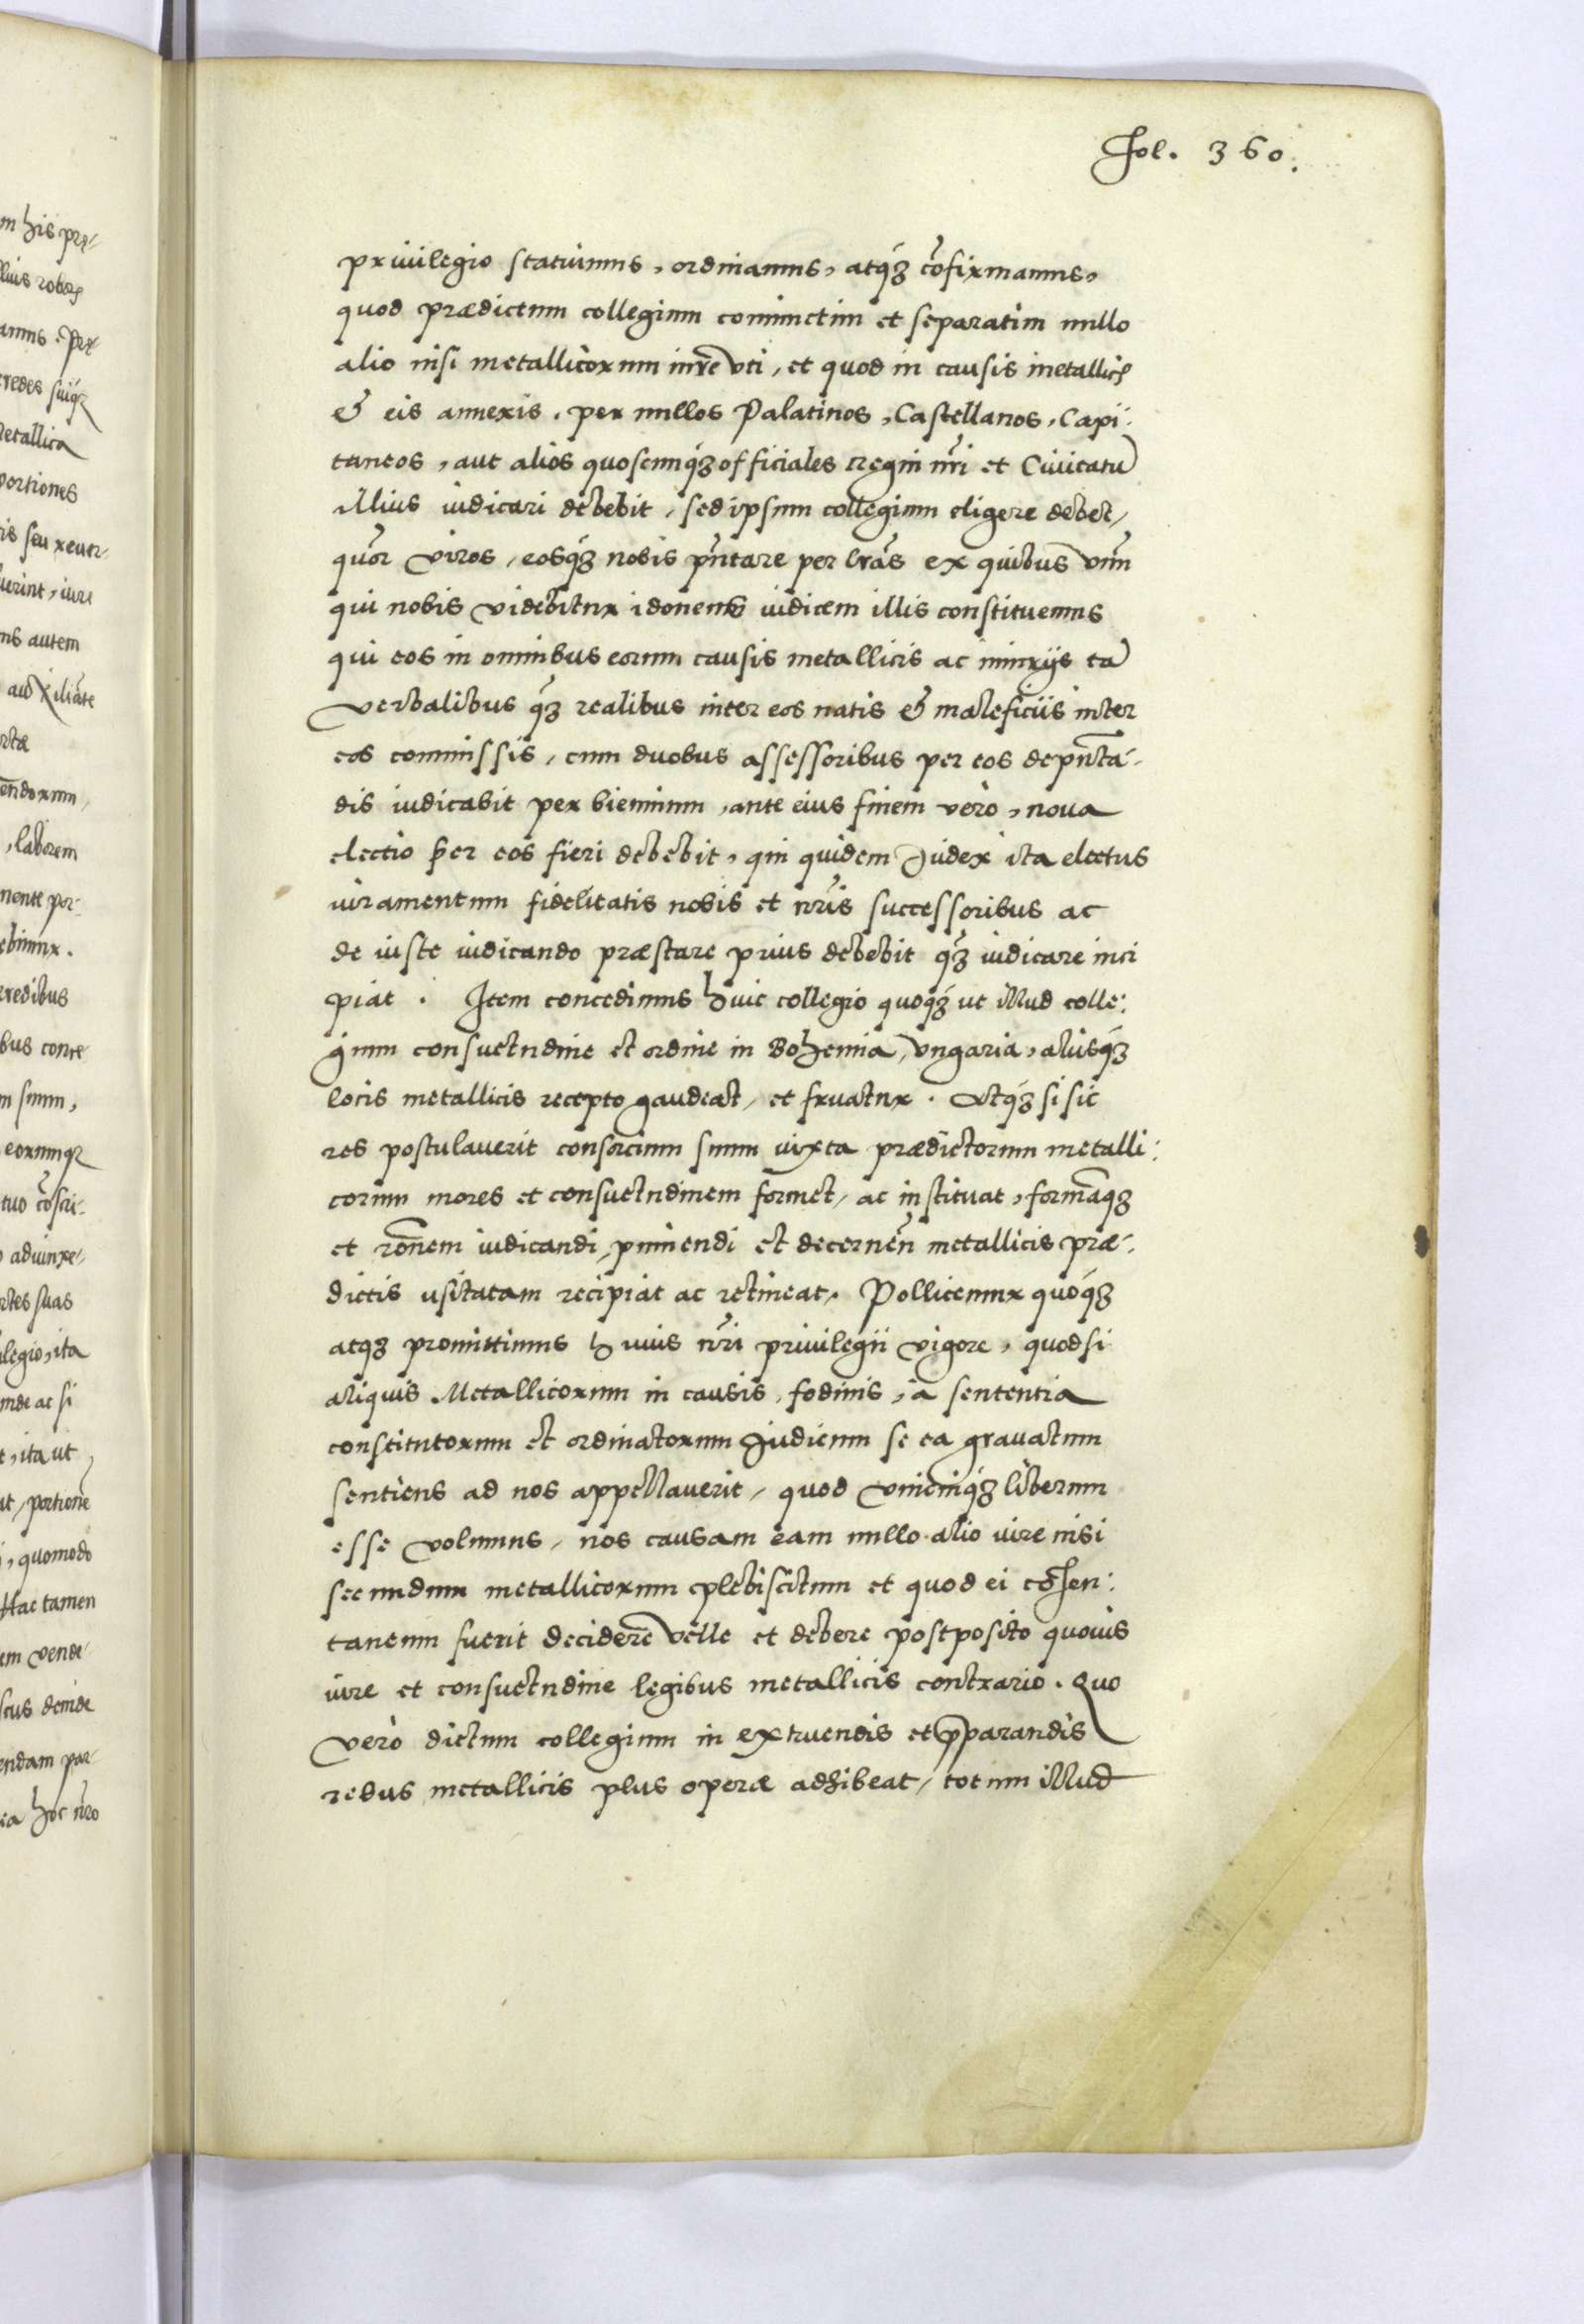 Fol. 360.
privilegio statuimus, ordinamus, atq́ꝫ cõfirmamus,
quod prædictum collegium coniunctim et separatim nullo
alio nisi metallicorum iure uti, et quod in causis metallicꝭ
& eis annexis, per nullos Palatinos, Castellanos, Capi:
taneos, aut alios quoscunq́ꝫ officiales regni nr̃i et Civitatũ
illius iudicari debebit, sed ipsum collegium eligere debet,
quor̃ viros, eosq́ꝫ nobis pñtare per lrãs ex quibus vnũ
qui nobis videbitur idoneus iudicem illis constituemus
qui eos in omnibus eorum causis metallicis ac iniurijs tã
verbalibus q̃ꝫ realibus inter eos natis & maleficiis inter
eos commissis, cum duobus assessoribus per eos deputã-
dis iudicabit per biennium, ante eius finem verò, nova
electio per eos fieri debebit, qui quidem Iudex ita electus
iuramentum fidelitatis nobis et nr̃is successoribus ac
de iuste iudicando præstare prius debebit q̃ꝫ iudicare inci
piat. Item concedimus huic collegio quoq́ꝫ ut illud colle:
gium consuetudine et ordine in Bohemia, Vngaria, aliisq́ꝫ
locis metallicis recepto gaudeat, et fruatur. Atq́ꝫ si sic
res postulaverit consorcium suum iuxta prædictorum metalli:
corum mores et consuetudinem formet, ac instituat, formãq́ꝫ
et rõnem iudicandi, puniendi et decernen̄ metallicis præ-
dictis usitatam recipiat ac retineat. Pollicemur quoq́ꝫ
atqꝫ promittimus huius nr̃i privilegii vigore, quodsi
aliquis Metallicorum in causis, fodinis, à sententia
constitutorum et ordinatorum Iudicum se ea gravatum
sentiens ad nos appellaverit, quod vnicuiq́ꝫ liberum
esse volumus, nos causam eam nullo alio iure nisi
secundum metallicorum plebiscitum et quod ei cõsen:
taneum fuerit decidere velle et debere postposito quovis
iure et consuetudine legibus metallicis contrario. Quo
verò dictum collegium in extruendis et p̃parandis
rebus metallicis plus operæ adhibeat, totum illud